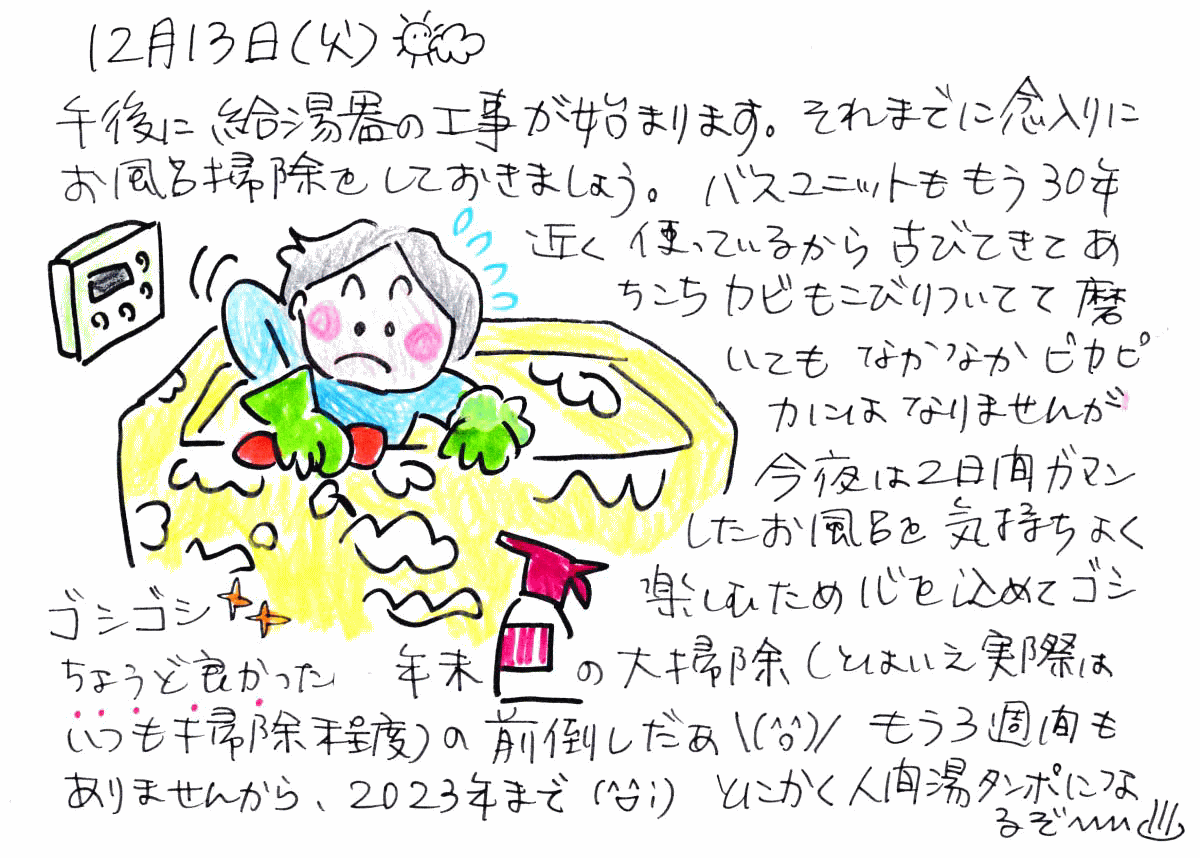 12月13日(火)
午後に給湯器の工事が始まります。それまでに念入りに
お風呂掃除をしておきましょう。バスユニットももう30年
近く使っているから古びてきてあ
ちこちカビもこびりついてて磨
いてもなかなかピカピ
カにはなりませんが
今夜は2日間ガマン
したお風呂を気持ちよく
楽しむため心を込めてゴシ
ゴシゴシ
ちょうど良かった 年末の大掃除(とはいえ実際は
いつも掃除程度)の前倒しだぁ\(^o^)/ もう3週間も
ありませんから、2023年まで(^^;) とにかく人間湯タンポにな
るぞ〜〜♨